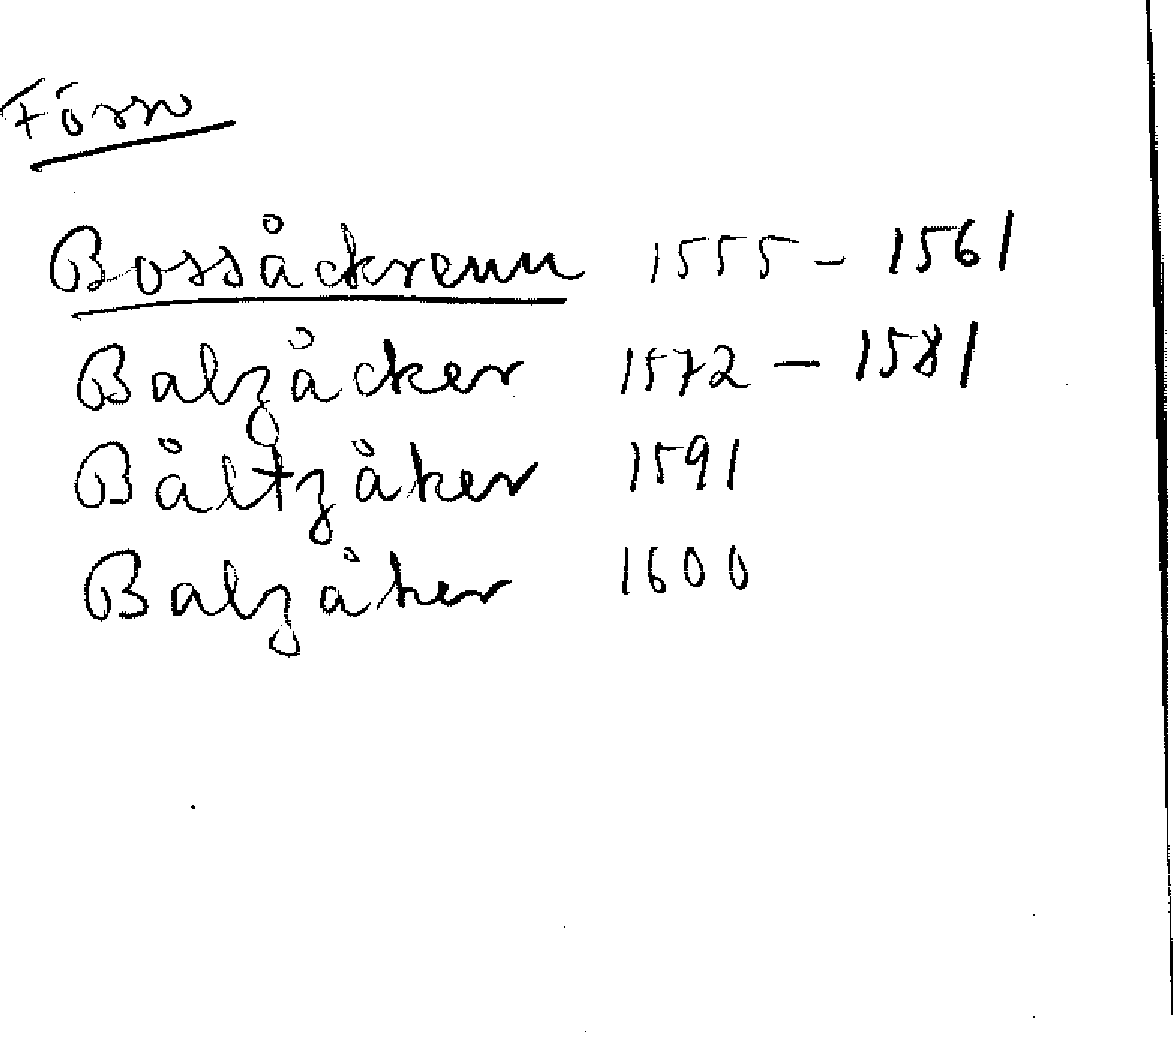 Förn
Bossåckrenn 1555 - 1561
Balzåcker 1572 - 1581
Båltzåker 1591
Balzåker 1600